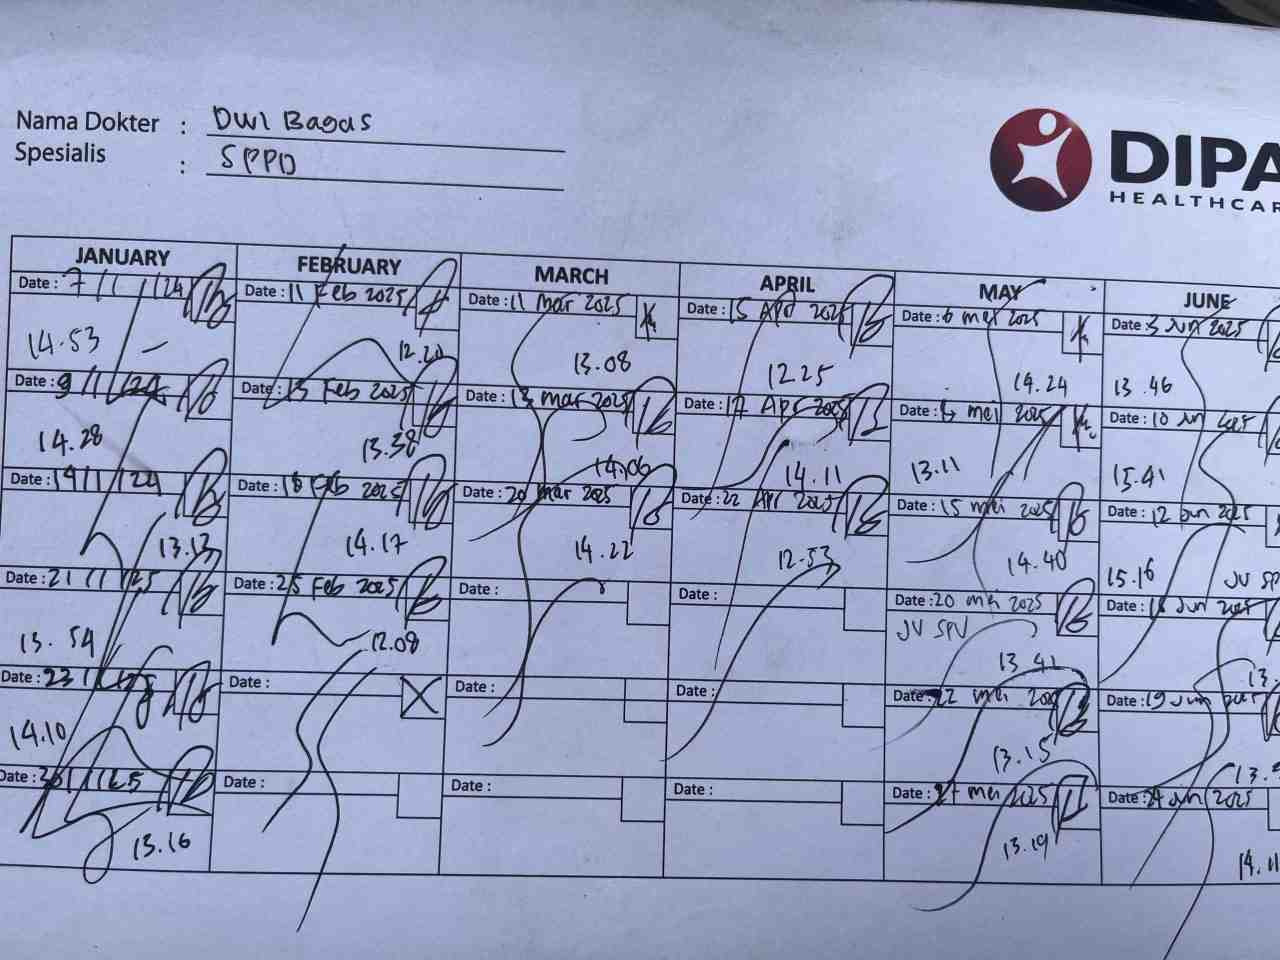 Nama Dokter : Dwi Bagas
Spesialis : SPPD
DIPA
HEALTHCAR
JANUARY
Date : 7/1/24
14.53
Date : 9/1/24
14.28
Date : 14/1/24
13.13
Date : 21/1/25
13.54
Date : 23/1/25
14.10
Date : 30/1/25
13.16
FEBRUARY
Date : 11 Feb 2025
12.20
Date : 13 Feb 2025
13.38
Date : 18 Feb 2025
14.17
Date : 25 Feb 2025
12.08
Date :
Date :
MARCH
Date : 11 Mar 2025
13.08
Date : 13 mar 2025
14.06
Date : 20 mar 2025
14.22
Date :
Date :
Date :
APRIL
Date : 15 Apr 2025
12.25
Date : 17 Apr 2025
14.11
Date : 22 Apr 2025
12.53
Date :
Date :
Date :
MAY
Date : 6 mei 2025
14.24
Date : mei 2025
13.11
Date : 15 mei 2025
14.40
Date : 20 mei 2025
JV SPV
13.41
Date : 22 mei 2025
13.15
Date : 27 mei 2025
13.19
JUNE
Date : 3 Jun 2025
13.46
Date : 10 Jun 2025
15.41
Date : 12 Jun 2025
15.16
JV SPV
Date : Jun 2025
13.
Date : 19 Jun 2025
13.
Date : 24 Jun 2025
14.11